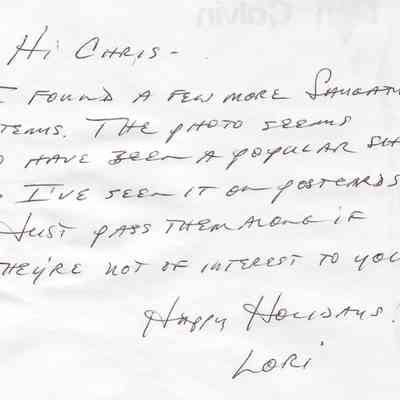 Hi Chris -
I found a few more Saugatu
tems. The photo seems
o have been a popular sh
I've seen it on postcards
Just pass them along if
they're not of interest to you
Happy Holidays!
Lori